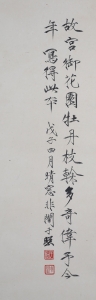 故宮御花園牡丹枝榦多奇偉予今
年寫得此本戊子四月晴窓非闇才照